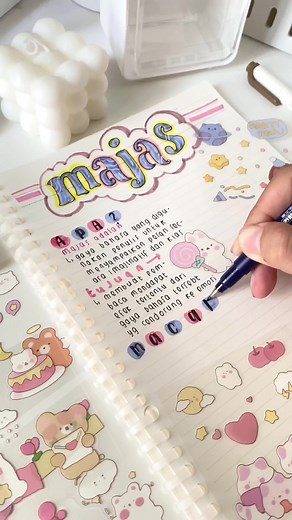 majas
APA?
majas adalah
↳ gaya bahasa yang digu-
nakan penulis untuk
menyampaikan pesan sec-
ara imajinatif dan kias
tujuan
↳ membuat pem-
baca mendapat
efek tertentu dari
gaya bahasa tersebut
yg cendorung ke emosi
maca